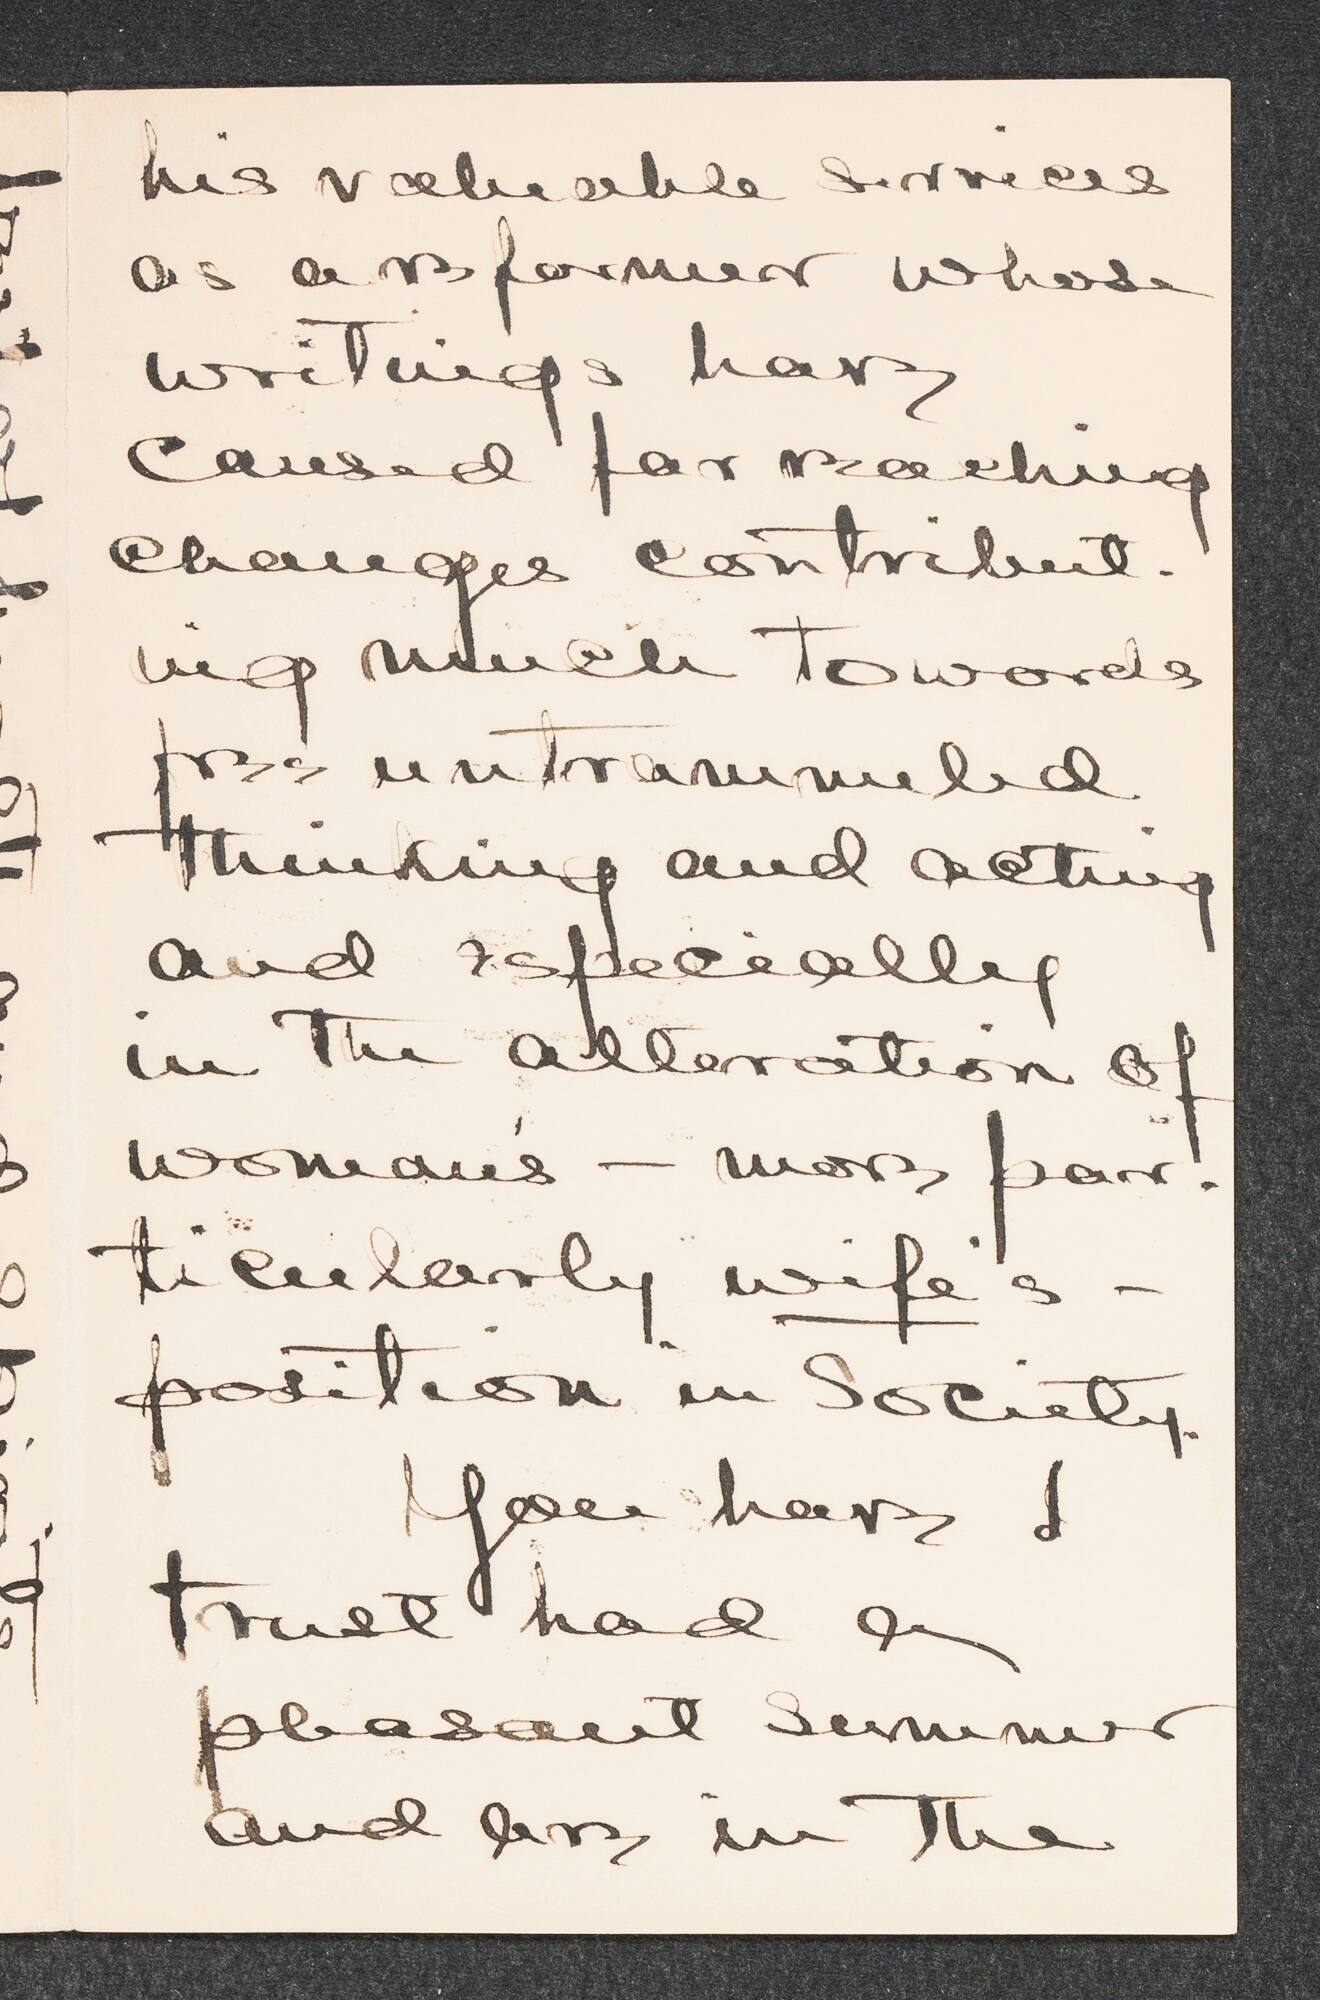 his valuable services
as a reformer whose
writings have
caused far reaching
changes contribut-
ing much towards
free untrammeled
thinking and acting
and especially
in the alteration of
woman's – more par-
ticularly wife's –
position in Society.
You have I
trust had a
pleasant summer
and are in the